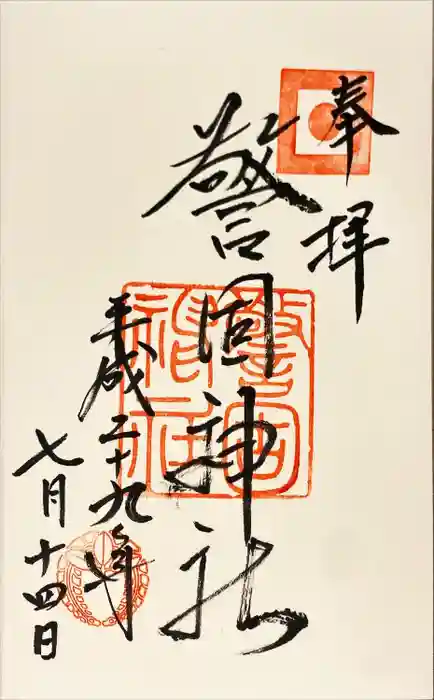 奉拝
警固神社
警固神社
平成二十九年
七月十四日